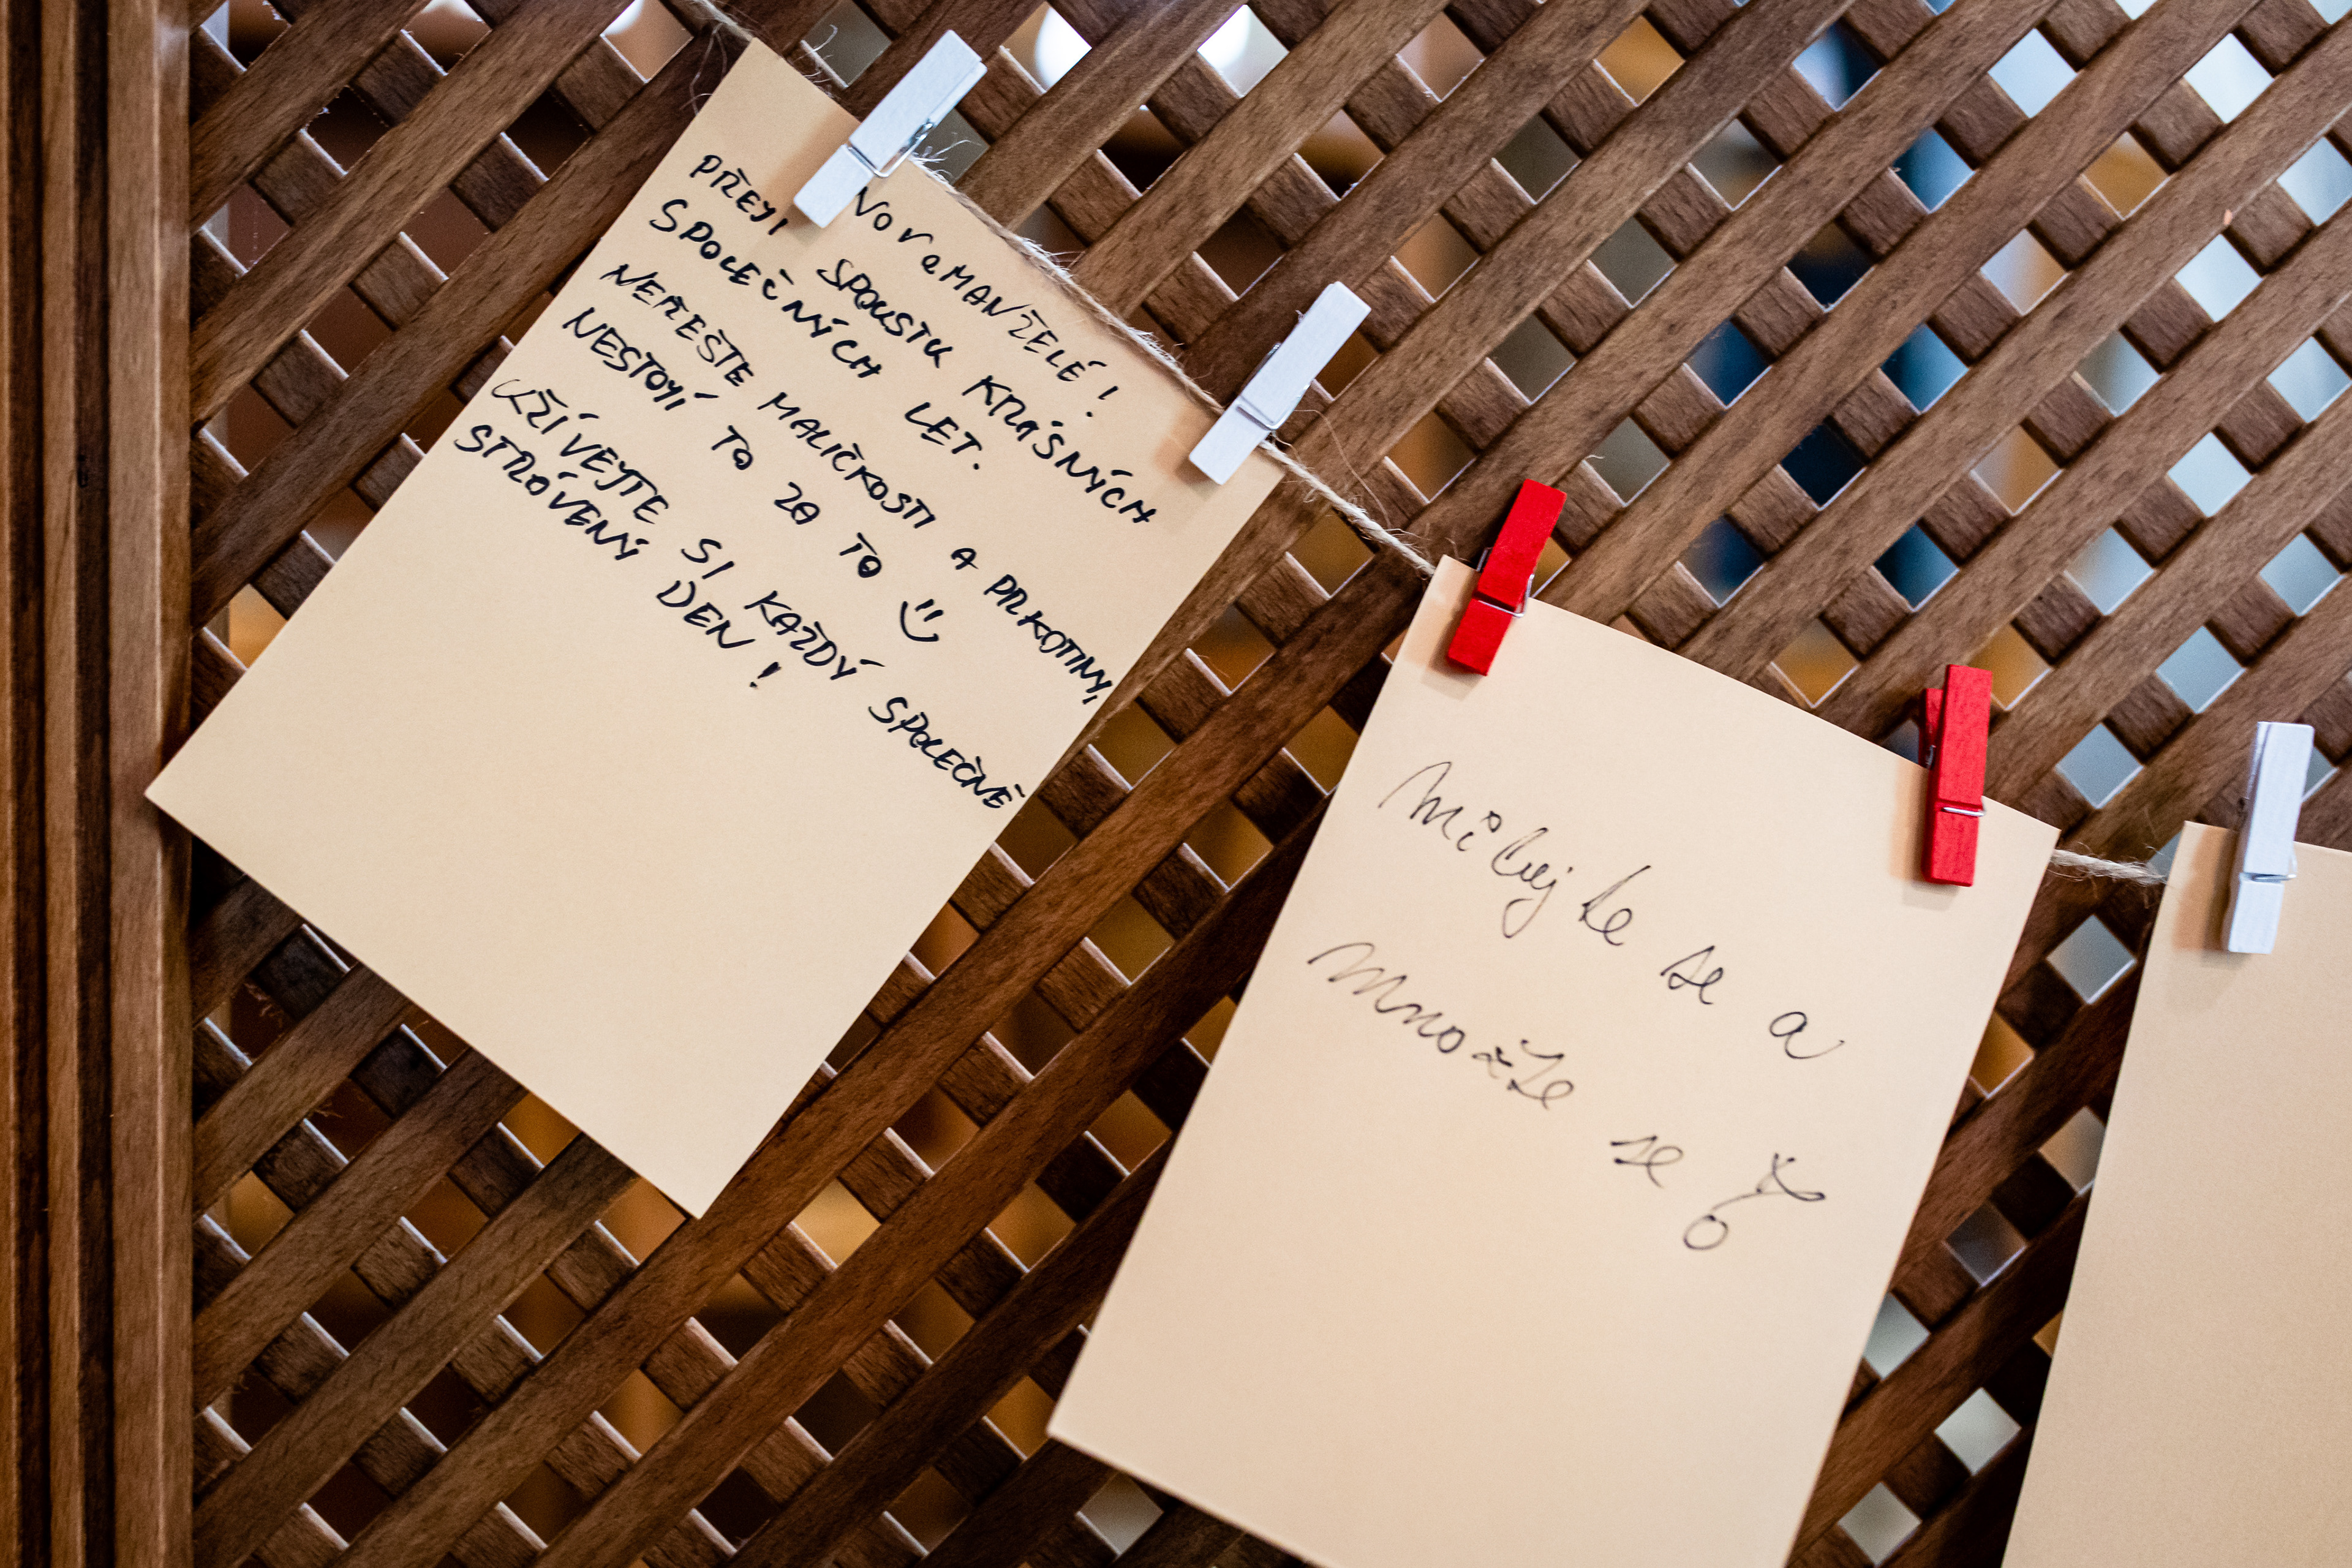 NOVOMANŽELÉ!
PŘEJI SPOUSTU KRÁSNÝCH
SPOLEČNÝCH LET.
NEŘEŠTE MALIČKOSTI A PRKOTINY,
NESTOJÍ TO ZA TO
UŽÍVEJTE SI KAŽDÝ SPOLEČNĚ
STRÁVENÝ DEN!
Milujte se a
množte se